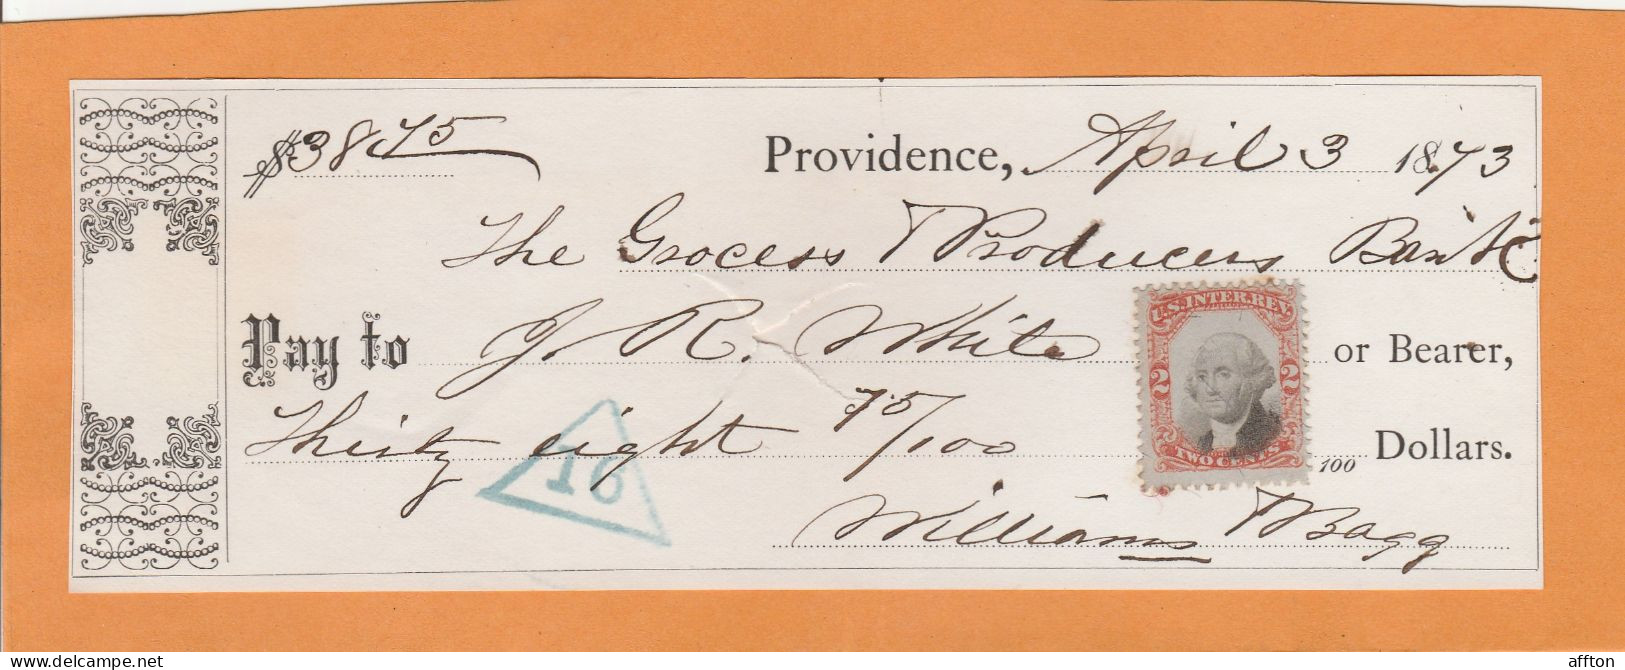 $38 75 Providence, April 3 1873
The Grocers & Producers Bank
Pay to J. R. White or Bearer,
Thirty eight 75/100 /100 Dollars.
William Bagg
U.S. INTER. REV.
2 2
TWO CENTS
16
www.delcampe.net
affton